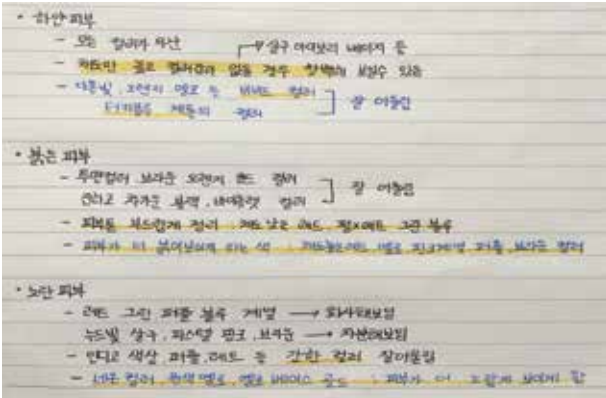 • 하얀 피부
- 모든 컬러가 무난 살구 아이보리 베이지 등
- 하지만 골드 컬러감이 없을 경우 창백해 보일수 있음
- 다홍빛, 오렌지 옐로 등 비비드 컬러
터키블루 계통의 컬러 잘 어울림
• 붉은 피부
- 투명컬러 브라운 오렌지 골드 컬러
블랙, 바이올렛 컬러 잘 어울림
- 피부톤 부드럽게 정리 : 채도 낮은 레드 그린 블루
- 피부가 더 붉어보이게 하는 색 : 채도높은레드 옐로 핑크계열 퍼플, 브라운 컬러
• 노란 피부
- 레드 그린 퍼플 블루 계열 → 화사해보임
누드빛 살구, 파스텔 핑크, 브라운 → 차분해보임
- 인디고 색상, 퍼플, 레드 등 강한 컬러 잘어울림
- 네온 컬러, 원색 옐로, 옐로 베이스 골드 : 피부가 더 노랗게 보이게 함